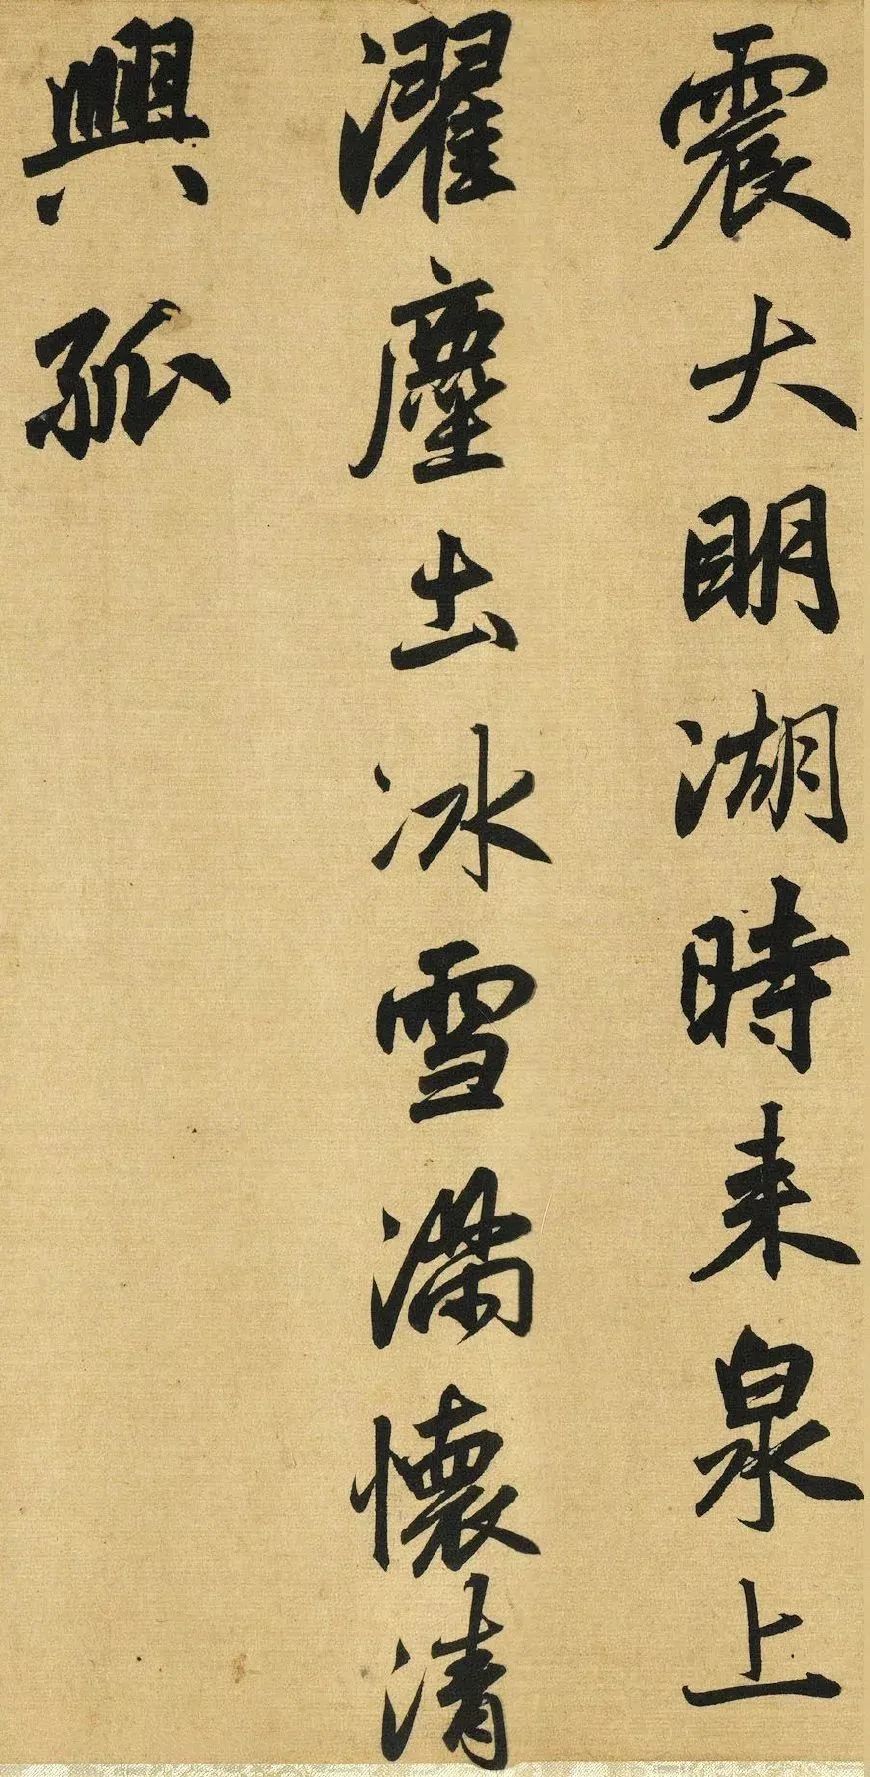 震大明湖時来泉上
濯塵土冰雪滿懷清
興孤